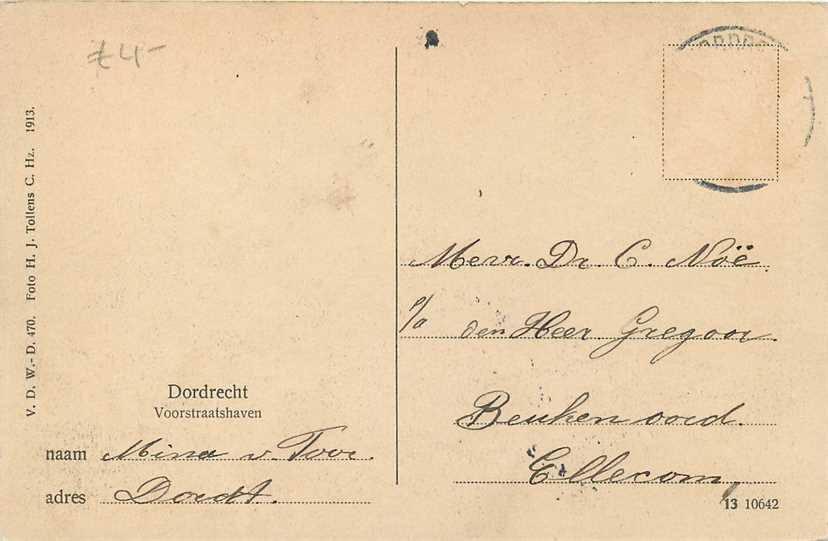 £4-
V. D. W.-D. 470. Foto H. J. Tollens C. Hz. 1913.
Dordrecht
Voorstraatshaven
naam Mina v.
adres Dordt.
Mevr. Dr. C. Noë
c/o den Heer Gregoor.
Beukenoord.
Ellecom,
13 10642